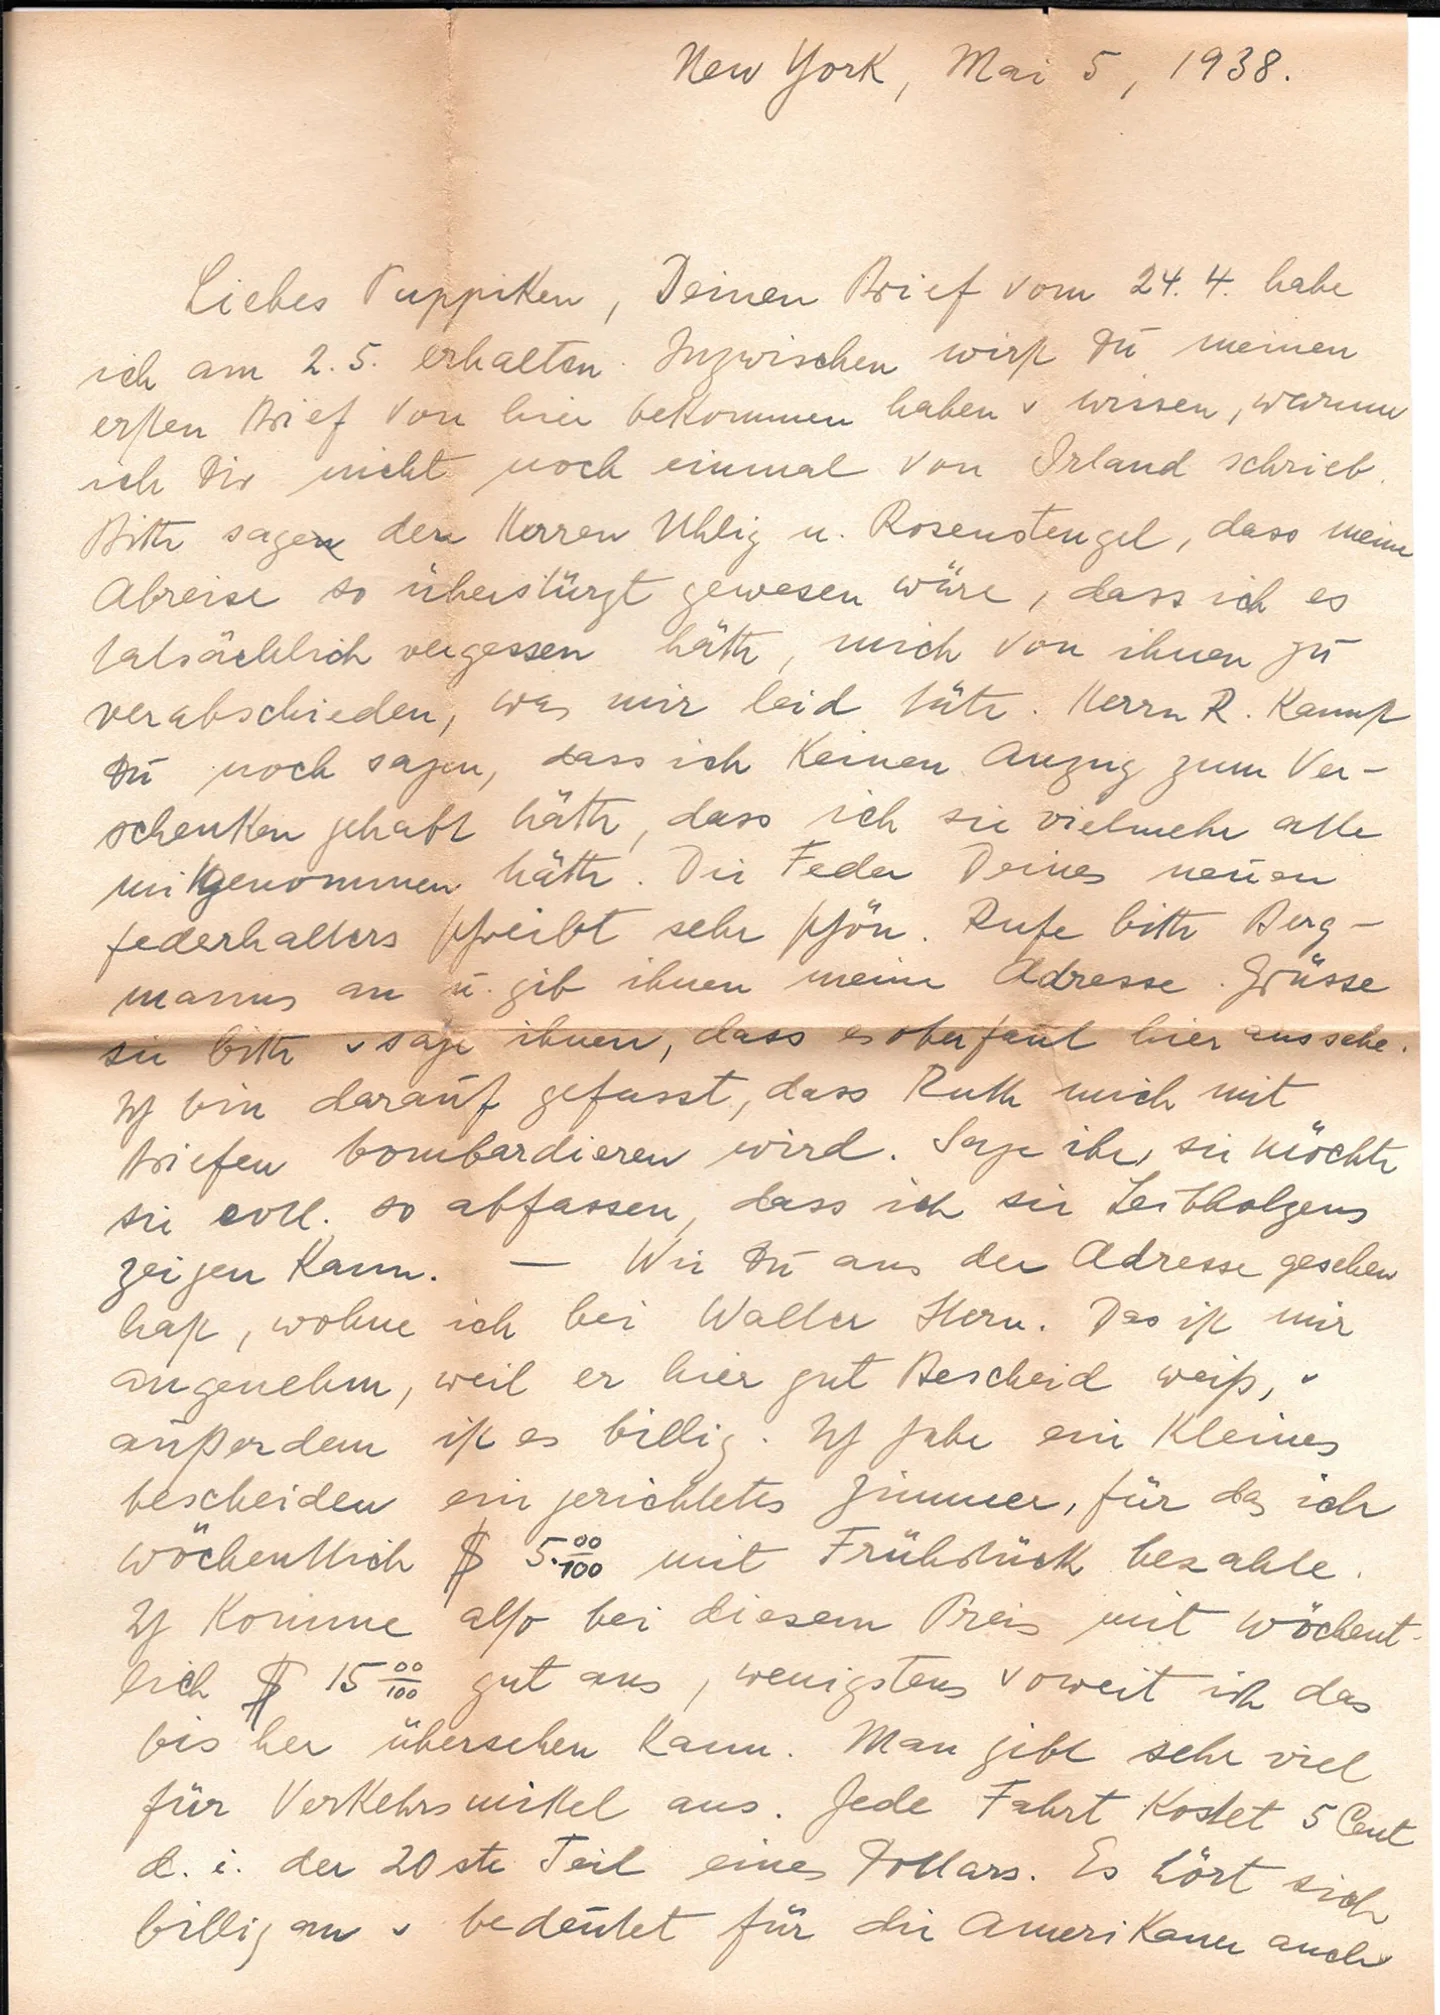 New York, Mai 5, 1938.
Liebes Puppiken, Deinen Brief vom 24. 4. habe
ich am 2. 5. erhalten. Inzwischen wirst Du meinen
ersten Brief von hier bekommen haben u wissen, warum
ich Dir nicht noch einmal von Irland schrieb.
Bitte sage den Herren Uhlig u. Rosenstengel, dass meine
Abreise so überstürzt gewesen wäre, dass ich es
tatsächlich vergessen hätte, mich von ihnen zu
verabschieden, was mir leid täte. Herrn R. kannst
Du noch sagen, dass ich keinen Anzug zum Ver-
schenken gehabt hätte, dass ich sie vielmehr alle
mitgenommen hätte. Die Feder Deines neuen
Federhalters schreibt sehr schön. Rufe bitte Berg-
manns an u. gib ihnen meine Adresse. Grüsse
sie bitte u sage ihnen, dass es oberfaul hier aussehe.
Ich bin darauf gefasst, dass Ruth mich mit
Briefen bombardieren wird. Sage ihr, sie möchte
sie evtl. so abfassen, dass ich sie Leibholzens
zeigen kann. — Wie Du aus der Adresse gesehen
hast, wohne ich bei Walter Stern. Das ist mir
angenehm, weil er hier gut Bescheid weiß, u
außerdem ist es billig. Ich habe ein kleines
bescheiden eingerichtetes Zimmer, für das ich
wöchentlich $ 5.00/100 mit Frühstück bezahle.
Ich komme also bei diesem Preis mit wöchent-
lich $ 15 00/100 gut aus, wenigstens soweit ich das
bisher übersehen kann. Man gibt sehr viel
für Verkehrsmittel aus. Jede Fahrt kostet 5 Cent
d. i. der 20ste Teil eines Dollars. Es hört sich
billig an u bedeutet für die Amerikaner auch